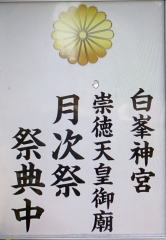 白峯神宮
崇徳天皇御廟
月次祭
祭典中